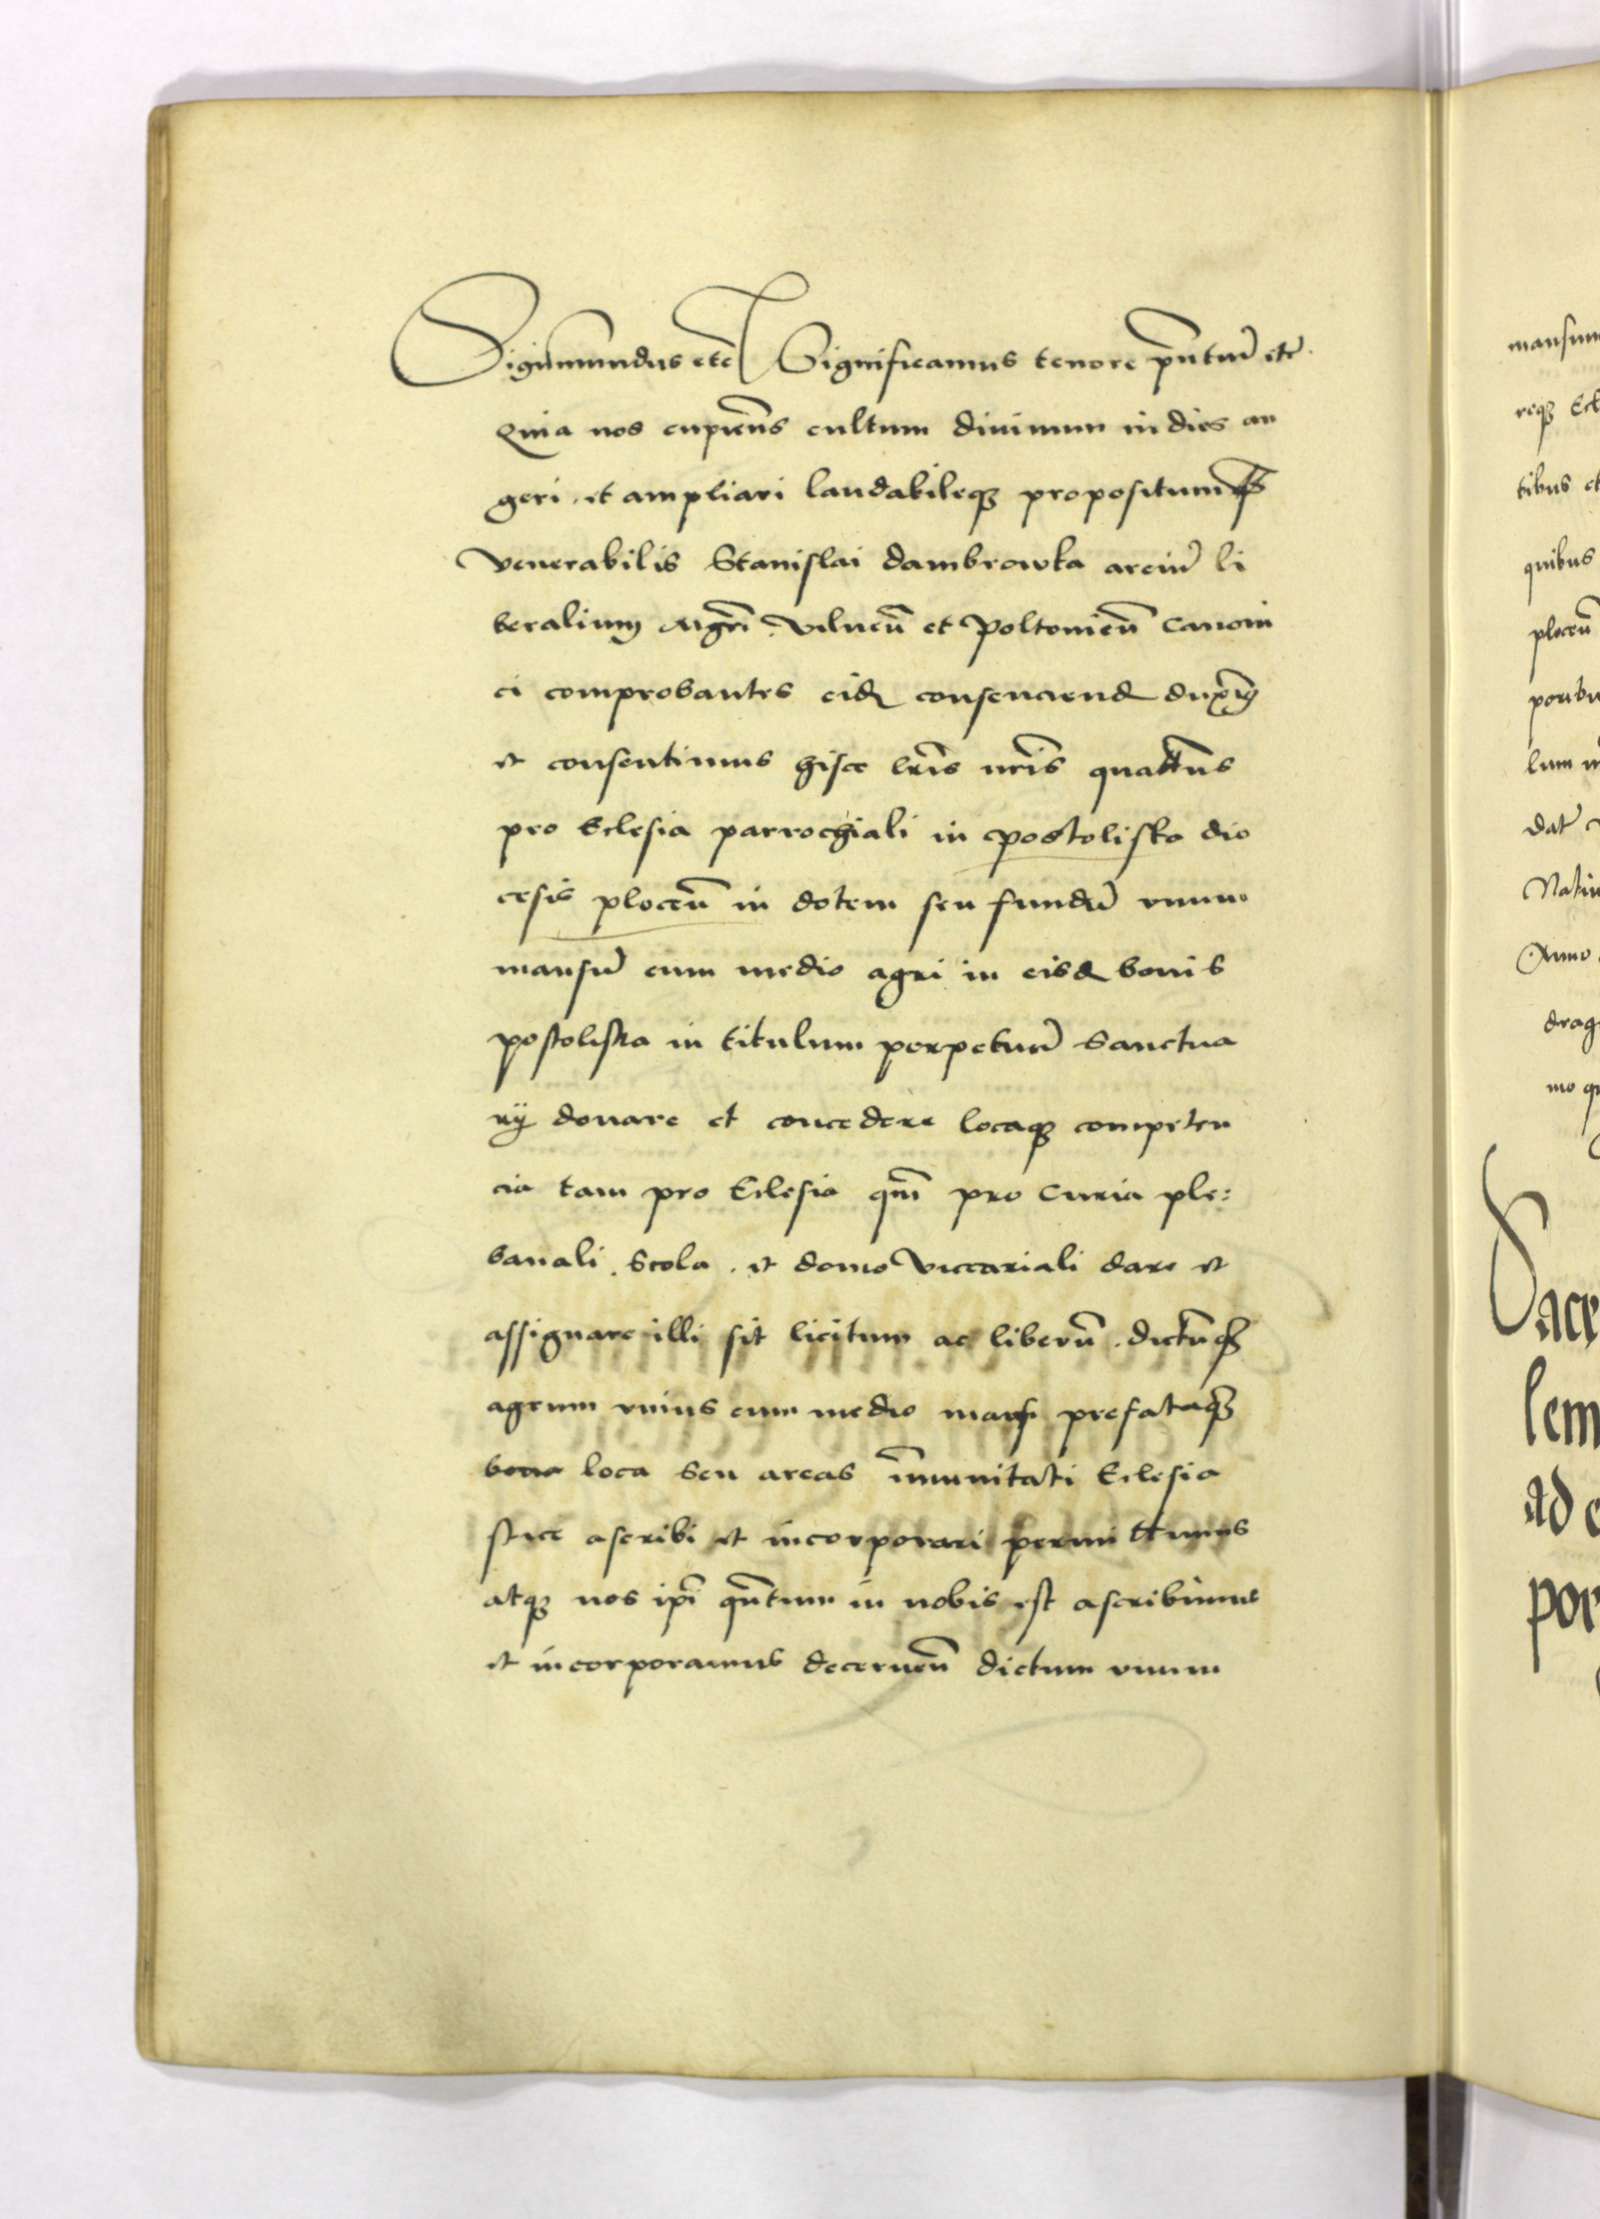 Sigismundus etc̃ Significamus tenore pñtiũ etc̃.
Quia nos cupieñs cultum diuinum in dies au
geri et ampliari laudabileq₃ propositum
venerabilis Stanislai dambrowka arciũ li
beralium Mgr̃i Vilneñ et Poltouieñ Canoni
ci comprobantes eid consenciend duxim̃
et consentimus hisce lr̃is nr̃is quatteñs
pro Eclesia parrochiali in postolisko dio
cesisploceñ in dotem seu fundũ vnum
mansũ cum medio agri in eisd bonis
postoliska in titulum perpetuũ Sanctua
rij donare et concedere locaq₃ competen
cia tam pro Eclesia qm̃ pro Curia ple:
banali. Scola. et domo viccariali dare et
assignare illi sit licitum ac liberũ. dictũq₃
agrum vnius cum medio mansi prefataq₃
loca seu areas im̃munitati Eclesia
stice ascribi et incorporari permittimus
atq₃ nos ip̃i qñtum in nobis est ascribimus
et incorporamus decerneñ dictum vnum
mansum
req₃ Ecl
tibus et
quibus
ploceñ
poribu
lum
dat̃
Natiu
Anno
drag
mo q
Sace
lem
ad
por